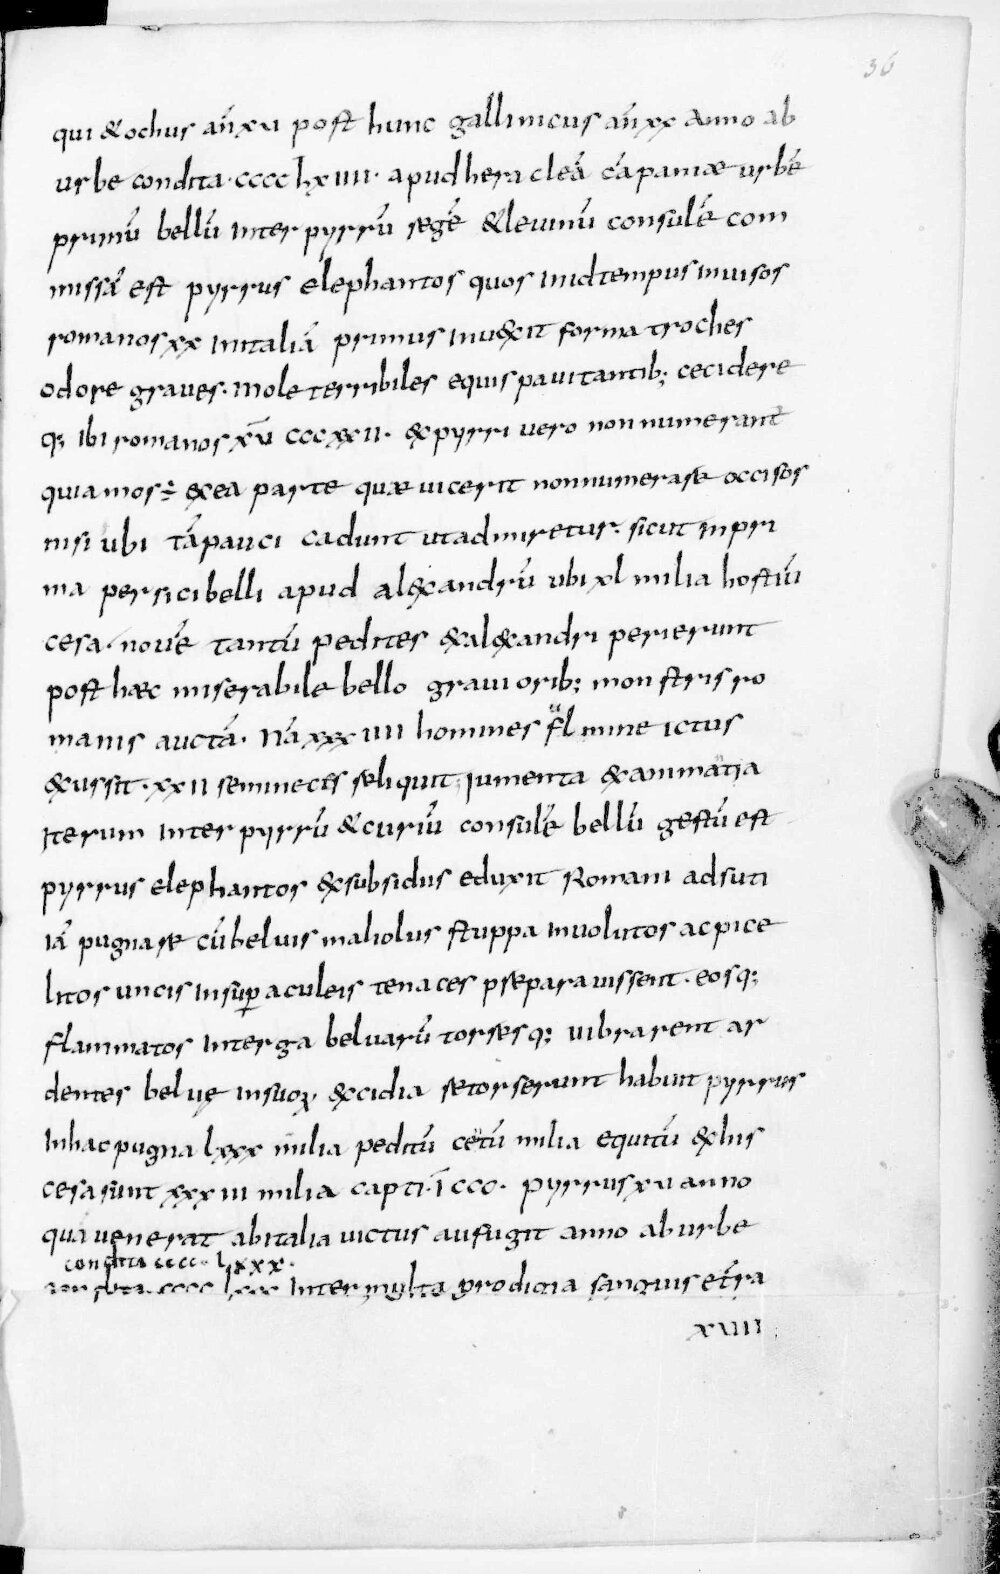 36
qui & ochus an̄ xvi post hunc gallinicus an̄ xx Anno ab
urbe condita · cccc lxiiii · apud heracleā cāpaniæ urbē
primū bellū inter pyrrū regē & levinū consulē com
missū est pyrrus elephantos quos in id tempus invisos
romanos xx in italiā primus invexit forma troches
odore graves · mole terribiles equis pavitantib; cecidere
q; ibi romanos xv̄ cccxxii · ex pyrri vero non numerant
quia mos ÷ ex ea parte quæ vicerit non numerare occisos
nisi ubi tā pauci cadunt ut admiretur · sicut in pri
ma persici belli apud alexandrū ubi xl milia hostiū
cesa · novē tantū pedites & alexandri perierunt
post hæc miserabile bello graviorib; monstris ro
manis auctā · Nā xxxiiii homines flmine ictus
exussit · xxii semineces reliquit iumenta exanimatia
Iterum inter pyrrū & curiū consulē bellū gestū est
pyrrus elephantos ex subsidiis eduxit Romani adsuti
iā pugnare cū beluis maliolus stuppa involutos ac pice
litos uncis insup aculeis tenaces preparavissent · eosq;
flammatos in terga beluarū torresq; vibrarent ar
dentes beluę in suoꝝ excidia retorserunt habuit pyrrus
in hac pugna lxxx milia peditū cetū milia equitū ex his
cesa sunt xxxiii milia capti · ī ccc · pyrrus xv anno
qua venerat ab italia victus aufugit anno ab urbe
condita cccc · lxxx ·
condita · cccc lxxx inter multa prodigia sanguis et̄ra
xviiii